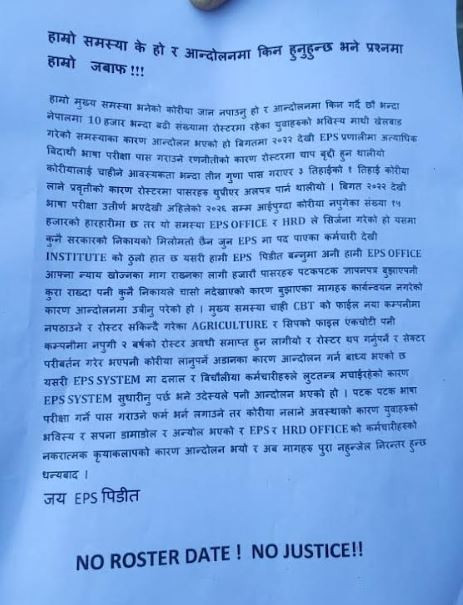 हाम्रो समस्या के हो र आन्दोलनमा किन हुनुहुन्छ भने प्रश्नमा
हाम्रो जबाफ !!!
हाम्रो मुख्य समस्या भनेको कोरीया जान नपाउनु हो र आन्दोलनमा किन गर्दै छौं भन्दा
नेपालमा 10 हजार भन्दा बढी संख्यामा रोस्टरमा रहेका युवाहरुको भविस्य माथी खेलबाड
गरेको समस्याका कारण आन्दोलन भएको हो बिगतमा २०२२ देखी EPS प्रणालीमा अत्याधिक
बिदाथी भाषा परीक्षा पास गराउने रणनीतीको कारण रोस्टरमा चाप बृदी हुन थालीयो
कोरीयालाई चाहीने आवस्यकता भन्दा तीन गुणा पास गराएर ३ तिहाईको १ तिहाई कोरीया
लाने प्रवृतीको कारण रोस्टरमा पासरहरु थुपीएर अलपत्र पार्न थालीयो । बिगत २०२२ देखी
भाषा परीक्षा उतीर्ण भएदेखी अहिलेको २०२६ सम्म आईपुग्दा कोरीया नपुगेका संख्या १५
हजारको हारहारीमा छ तर यो समस्या EPS OFFICE र HRD ले सिर्जना गरेको हो यसमा
कुनै सरकारको निकायको मिलोमतो छैन जुन EPS मा पद पाएका कर्मचारी देखी
INSTITUTE को ठुलो हात छ यसरी हामी EPS पिडीत बन्नुमा अनी हामी EPS OFFICE
आफ्ना न्याय खोज्नका माग राख्नका लागी हजारौ पासरहरु पटकपटक ज्ञापनपत्र बुझाएपनी
कुरा राख्दा पनी कुनै निकायले चासो नदेखाएको कारण बुझाएका मागहरु कार्यन्वयन नगरेको
कारण आन्दोलनमा उत्रीनु परेको हो । मुख्य समस्या चाही CBT को फाईल नया कम्पनीमा
नपठाउने र रोस्टर सकिन्दै गरेका AGRICULTURE र सिपको फाइल एकचोटी पनी
कम्पनीमा नपुगी २ बर्षको रोस्टर अवधी समाप्त हुन लागीयो र रोस्टर थप गर्नुपर्ने र सेक्टर
परीबर्तन गरेर भएपनी कोरीया लानुपर्ने अडानका कारण आन्दोलन गर्न बाध्य भएको छ
यसरी EPS SYSTEM मा दलाल र बिचौलीया कर्मचारीहरुले लुटतन्त्र मचाईरहेको कारण
EPS SYSTEM सुधारीनु पर्छ भने उदेस्यले पनी आन्दोलन भएको हो । पटक पटक भाषा
परीक्षा गर्ने पास गराउने फर्म भर्न लगाउने तर कोरीया नलाने अवस्थाको कारण युवाहरुको
भविस्य र सपना डामाडोल र अन्योल भएको र EPS र HRD OFFICE को कर्मचारीहरुको
नकरात्मक कृयाकलापको कारण आन्दोलन भयो र अब मागहरु पुरा नहुन्जेल निरन्तर हुन्छ
धन्यबाद ।
जय EPS पिडीत
NO ROSTER DATE ! NO JUSTICE!!